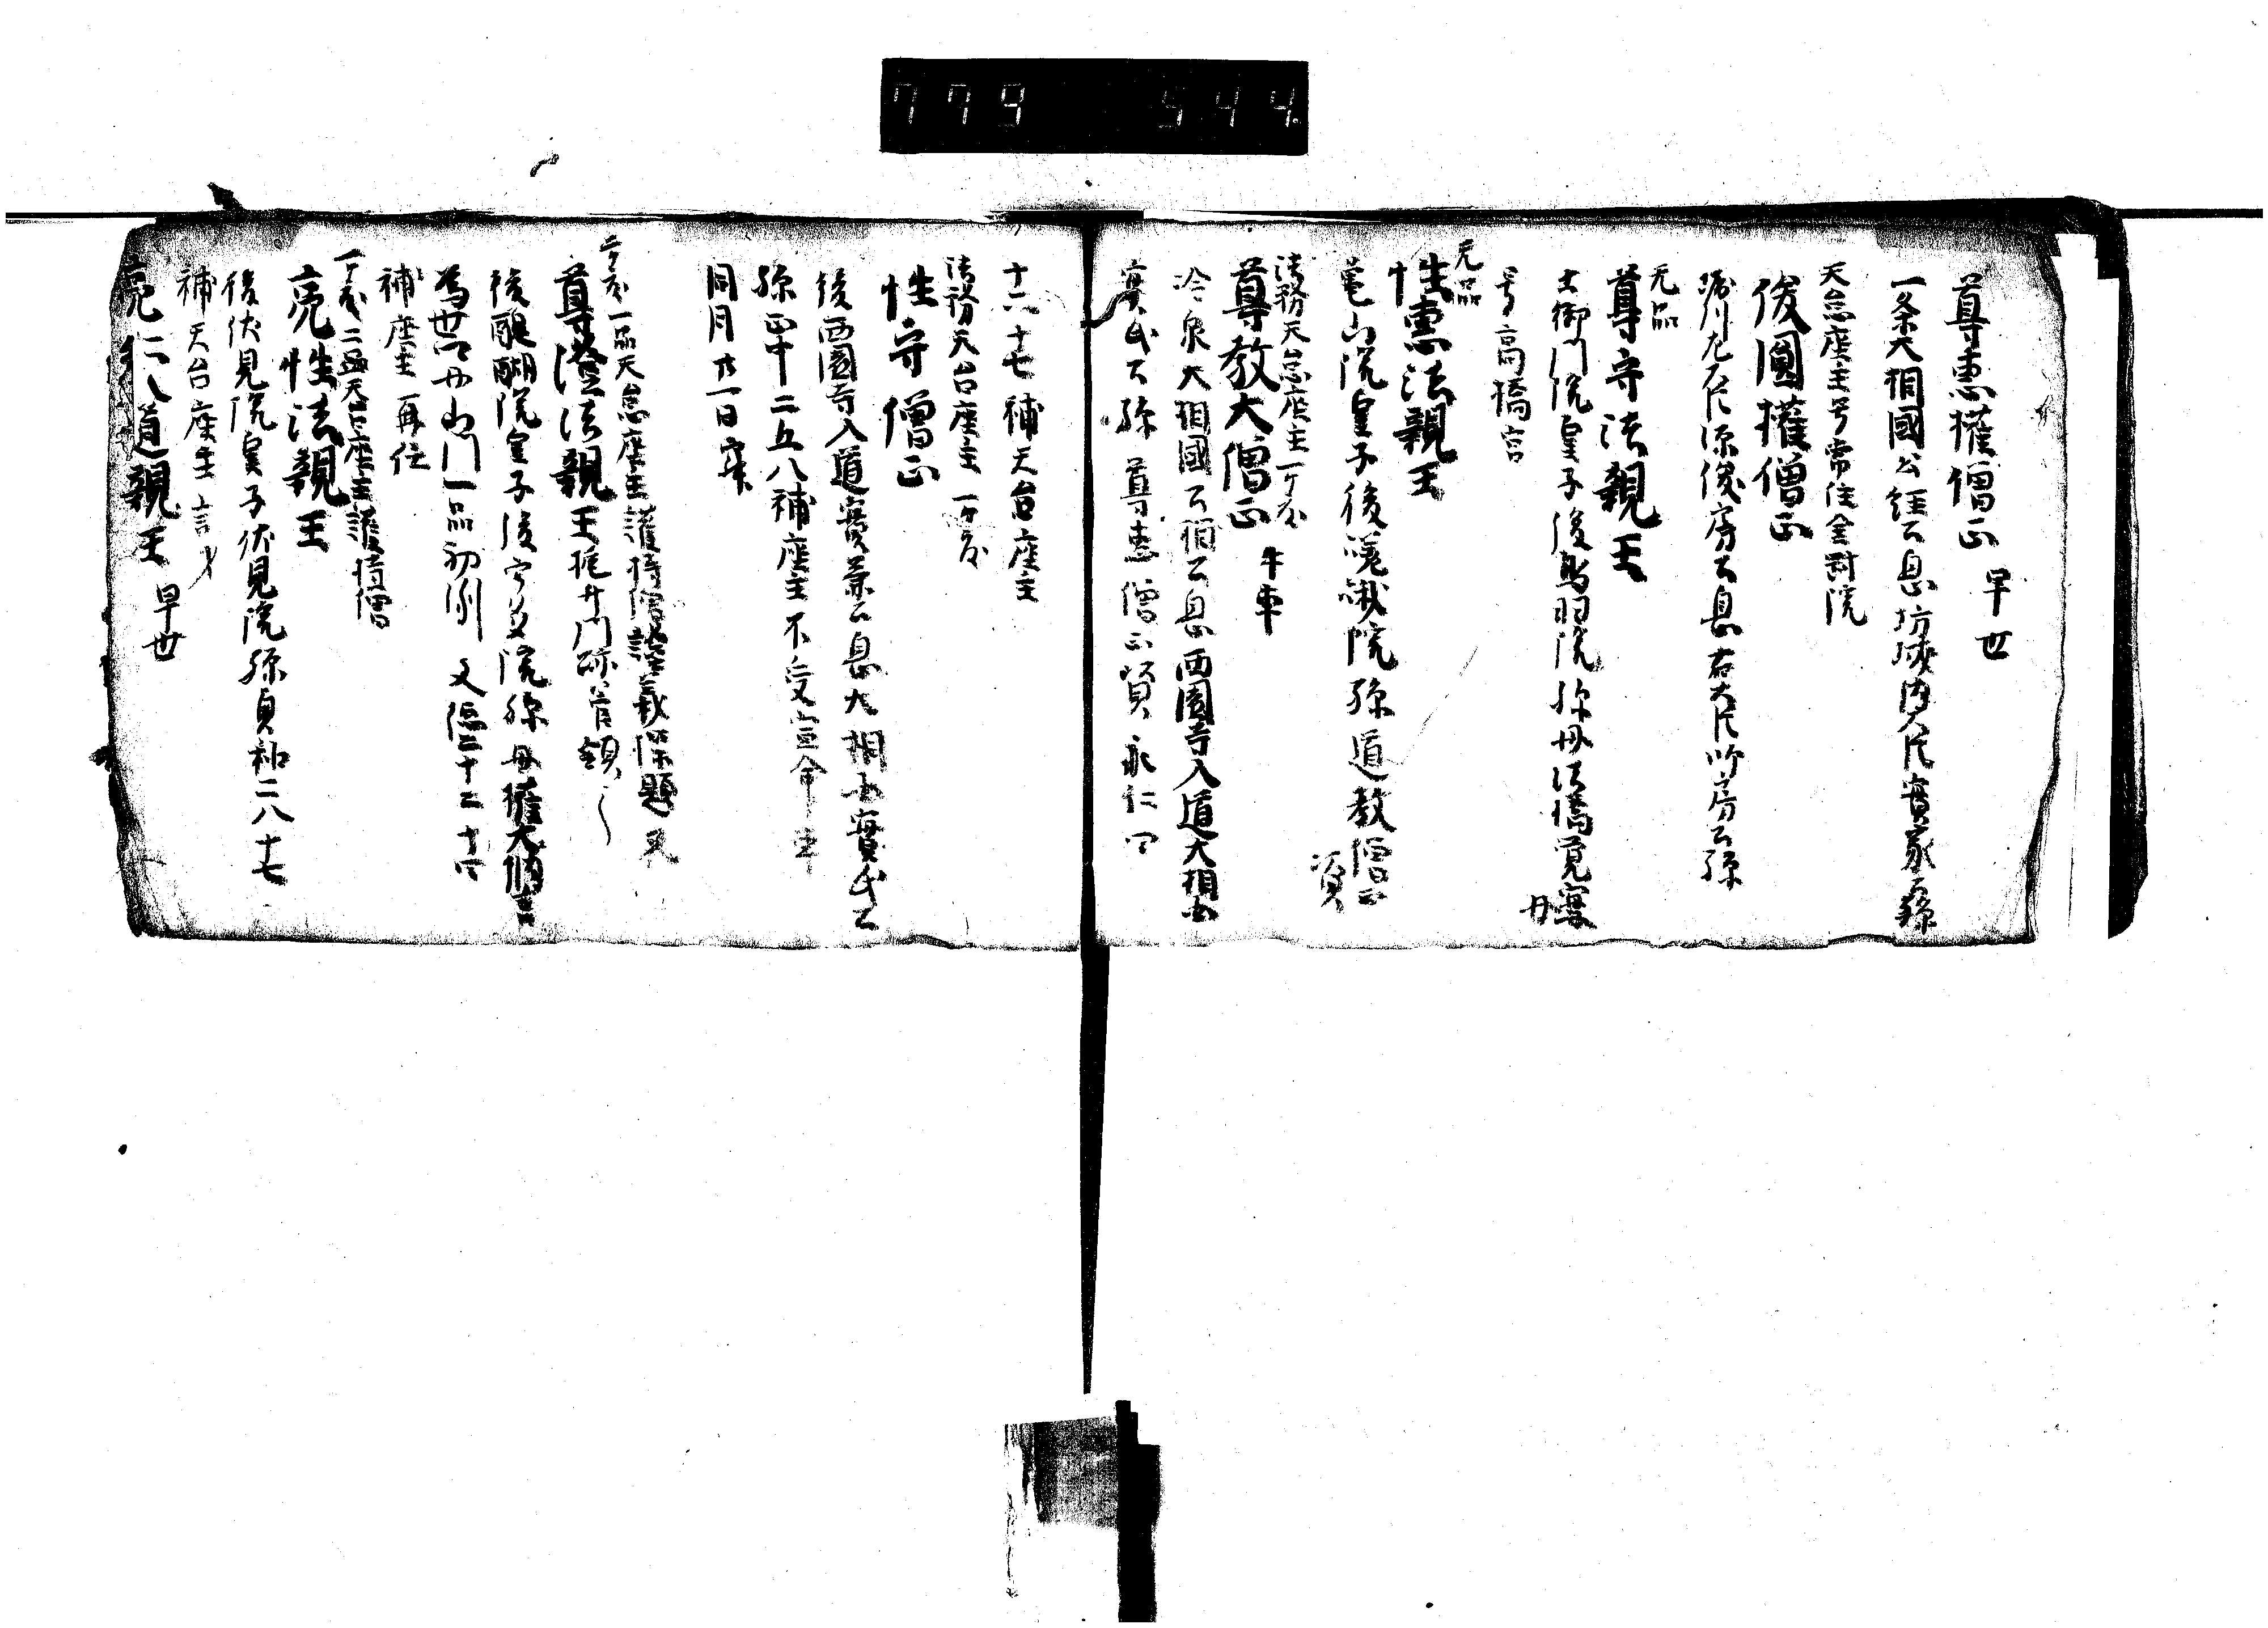 779 544
尊恵権僧正 早世
一条大相國公経公息坊城内大臣實家孫
天台座主号常住金剛院
俊圓権僧正
堀川左大臣源俊房公息右大臣師房公孫
无品
尊守法親王
土御門院皇子後鳥羽院孫母法橋覚寛
号高橋宮
无品
性恵法親王
亀山院皇子後嵯峨院孫道教僧正
資
法務天台座主一ケ度
尊教大僧正 牛車
冷泉大相國公相公息西園寺入道大相國
實氏公孫 尊恵僧正資 永仁四
十二八十七補天台座主
法務天台座主 一ケ度
性守僧正
後西園寺入道實兼公息大相國實氏公
孫正中二五八補座主不受宣命
同月廿一日寂
二ケ度一品天台座主護持僧證義探題
尊澄法親王梶井門跡管領
後醍醐院皇子後宇多院孫母権大納言
為世女山門一品初例 又
補座主再任
一ケ度二品天台座主護持僧
亮性法親王
後伏見院皇子伏見院孫貞和二八十七
補天台座主
亮仁入道親王 早世